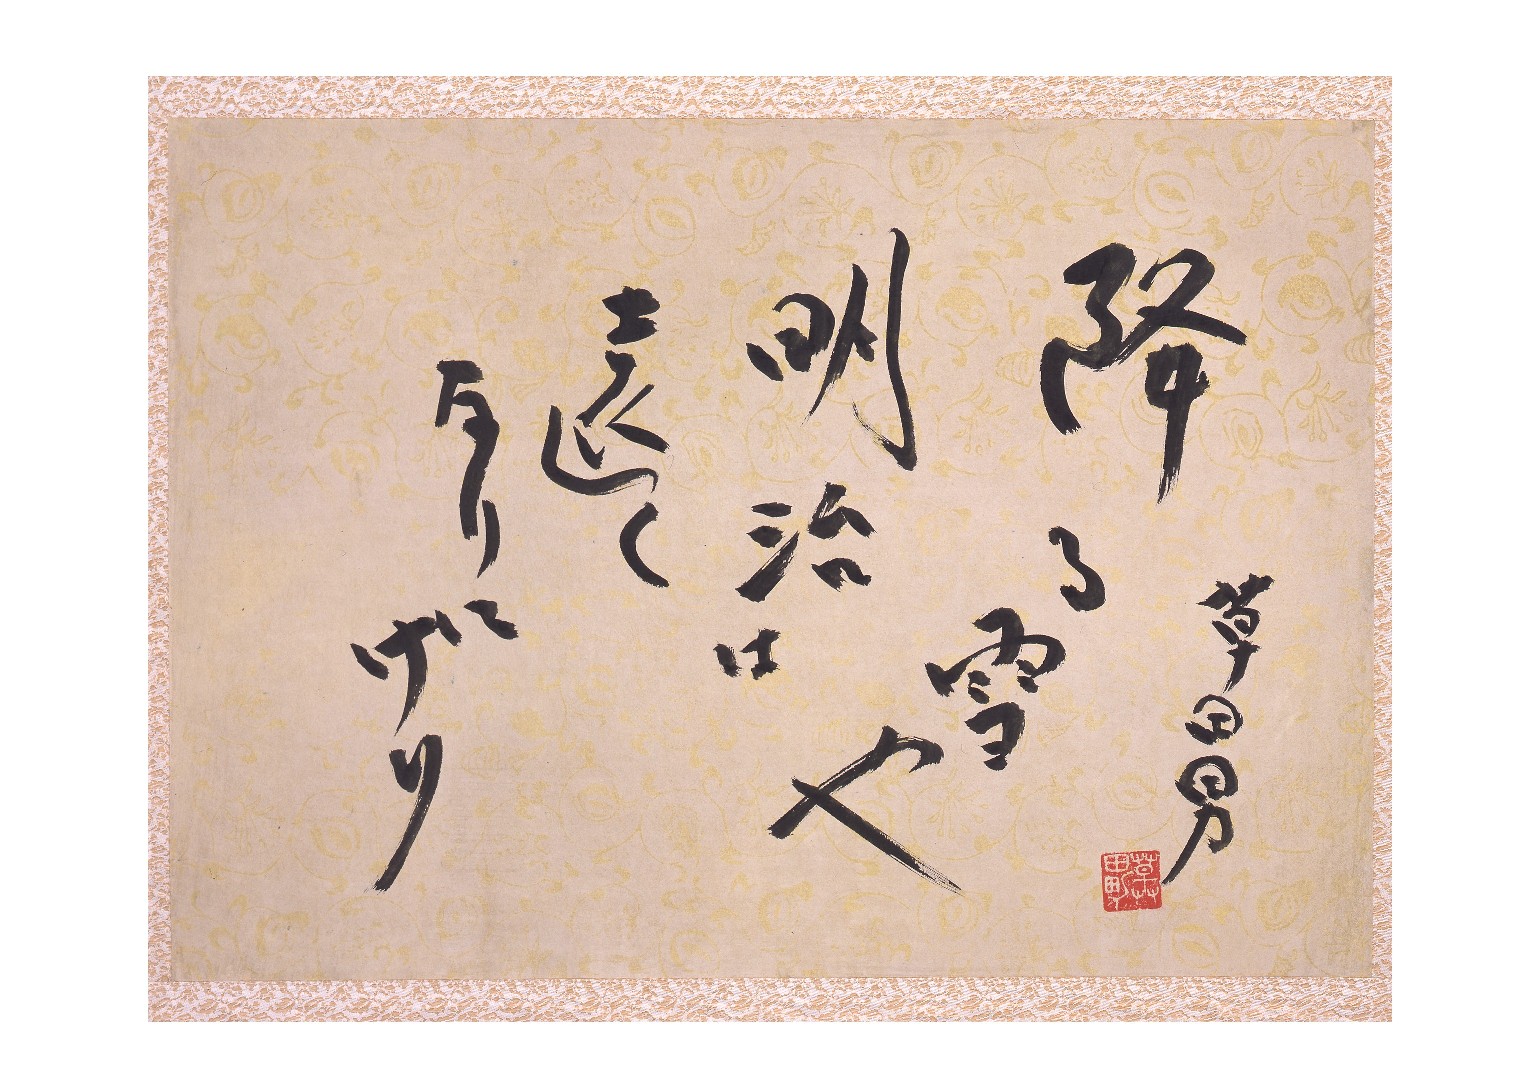 草田男
草田男
降る雪や
明治は
遠く
なりにけり